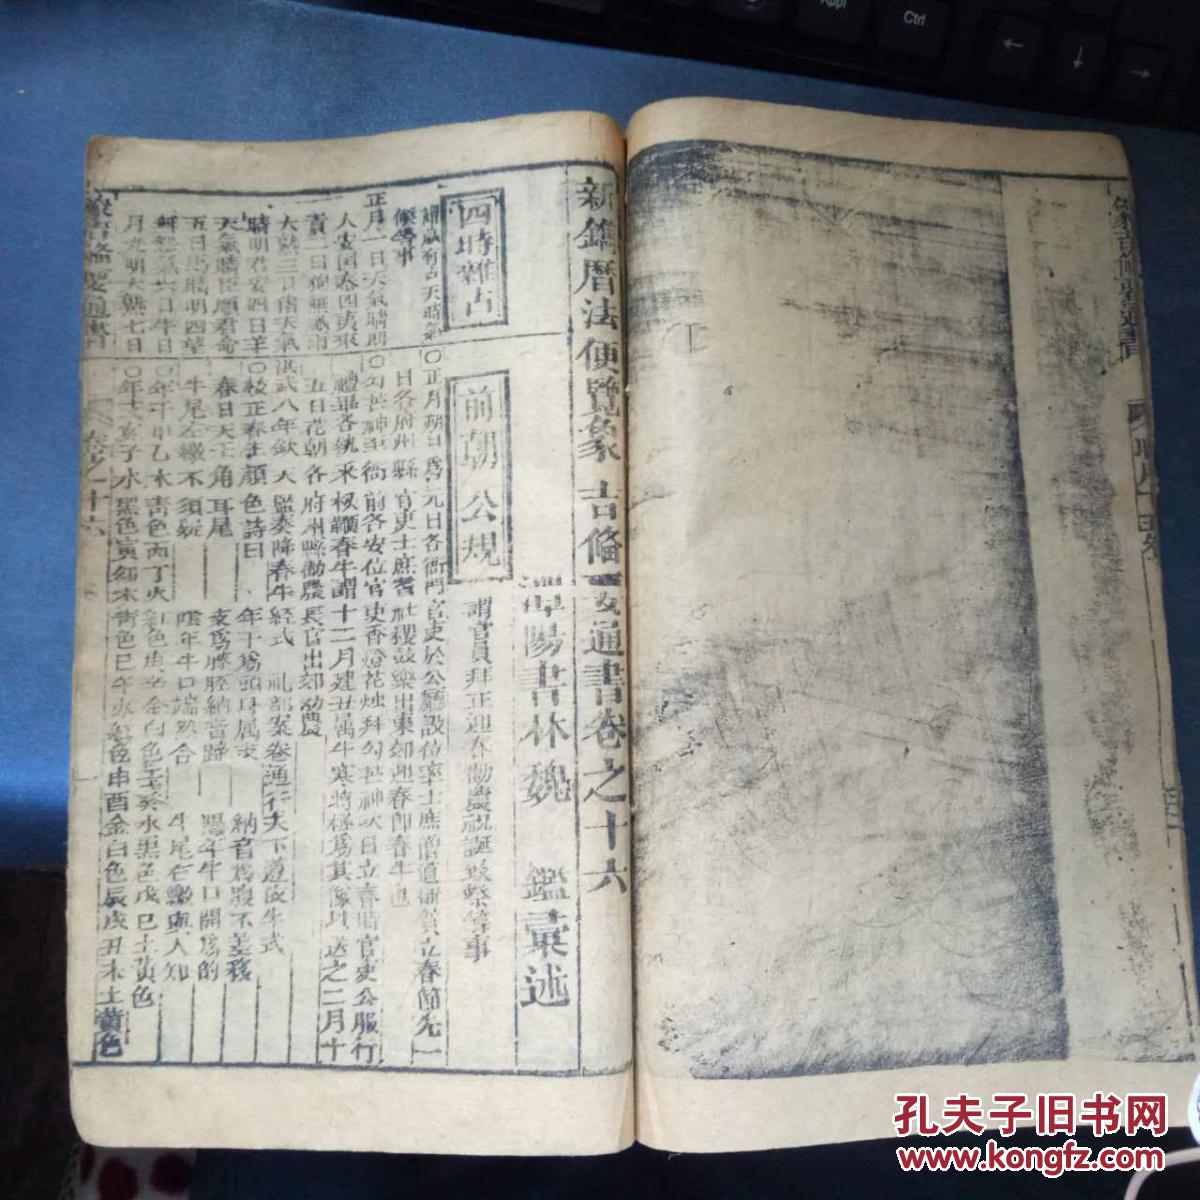 新鐫曆法便覽象吉備要通書卷之十六
潭陽書林魏 鑑彙述
四時雜占
正月一日天氣晴朗
人安国泰四夷來
貢二日狗無風雨
大熟三日猪天氣
晴明君安四日羊
天氣晴臣順君命
五日馬晴明四望
無怨氣六日牛日
月光明大熟七日
前朝公規
謂官員拜正迎春勸農祝誕救祭等事
〇正月朔日爲元日各衙門官吏於公廳設位率士庶僧道
立春節先一
日各府州縣官吏士庶耆社稷鼓樂出東郊迎春卽春牛也
〇勾芒神至衙前各安位官吏香燈花燭拜勾芒神次日立春時官吏公服行
禮畢各執采杖鞭春牛謂十二月建丑属牛寒將極爲其像以送之二月十
五日花朝各府州縣勸農長官出郊勸農
洪武八年欽天監奏降春牛經式 礼部案卷通行天下遵依牛式
〇校正春牛顏色詩曰 年干爲頭耳属支 納音爲腹不差移
春日天干角耳尾 支爲膝脛納音蹄 陽年牛口開爲的
牛尾左繳不須疑 陰年牛口端然合 牛尾右繳與人知
〇年干甲乙木青色丙丁火紅色庚辛金白色壬癸水黑色戊巳土黃色
〇年支亥子水黑色寅卯木青色巳午火紅色申酉金白色辰戌丑未土黃色
象吉備要通書
卷之十六
象吉備要通書
Appl
Ctrl
←
↓
→
孔夫子旧书网
www.kongfz.com